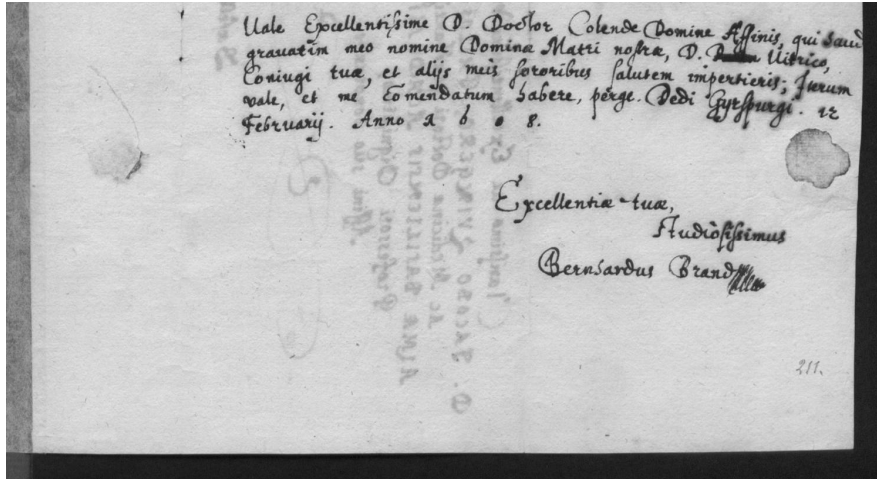 Uale Excellentissime D. Doctor Colende Domine Affinis, qui haud
gravatim meo nomine Dominæ Matri nostræ, D. Uitrico,
Coniugi tuæ, et alijs meis sororibus salutem impertieris; Iterum
vale, et me comendatum habere, perge. Dedi Gyrspurgi. 12
Februarij. Anno 1 6 0 8.
Excellentiæ tuæ,
studiosissimus
Bernhardus Brand
211.